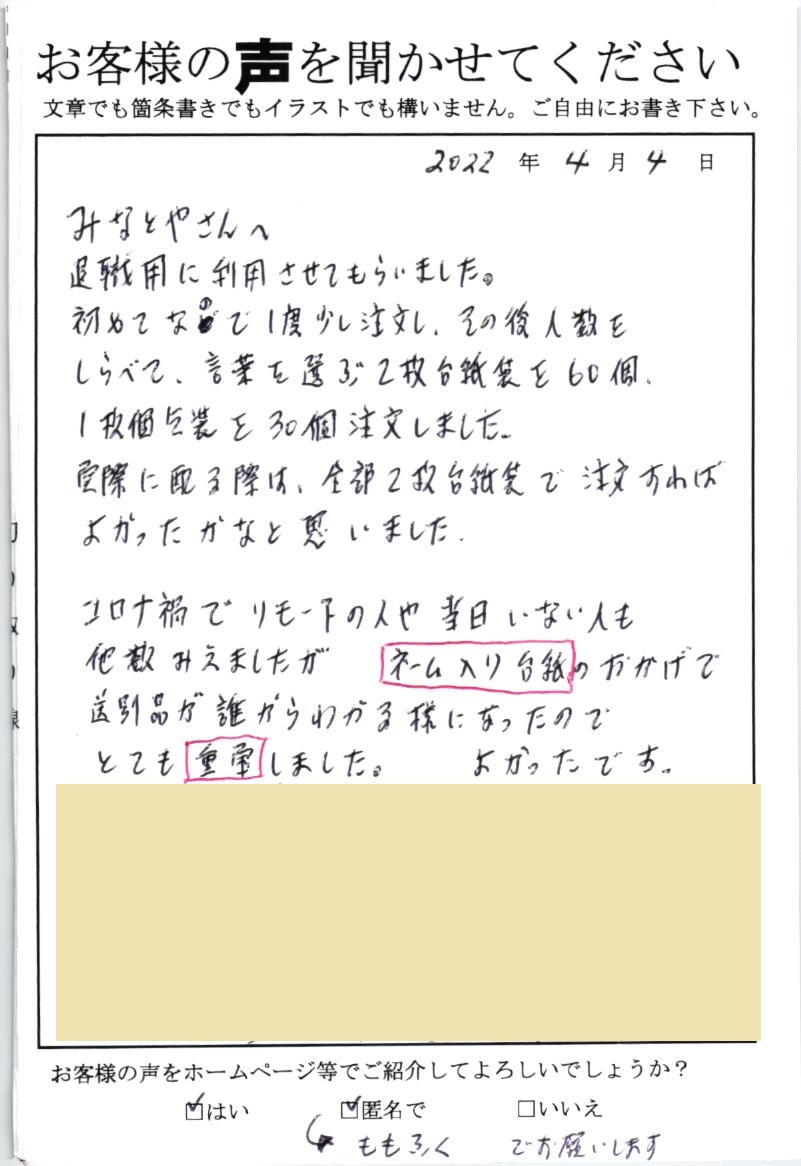 お客様の声を聞かせてください
文章でも箇条書きでもイラストでも構いません。ご自由にお書き下さい。
2022 年 4 月 4 日
みなとやさんへ
退職用に利用させてもらいました。
初めてなので1度少し注文し、その後人数を
しらべて、言葉を選ぶ2枚台紙袋を60個、
1枚個包装を30個注文しました。
実際に配る際は、全部2枚台紙袋で注文すれば
よかったかなと思いました.
コロナ禍でリモートの人や当日いない人も
他数みえましたが ネーム入り台紙のおかげで
送別品が誰からわかる様になったので
とても重宝しました。 よかったです。
お客様の声をホームページ等でご紹介してよろしいでしょうか?
☑はい ☑匿名で □いいえ
ももふく でお願いします